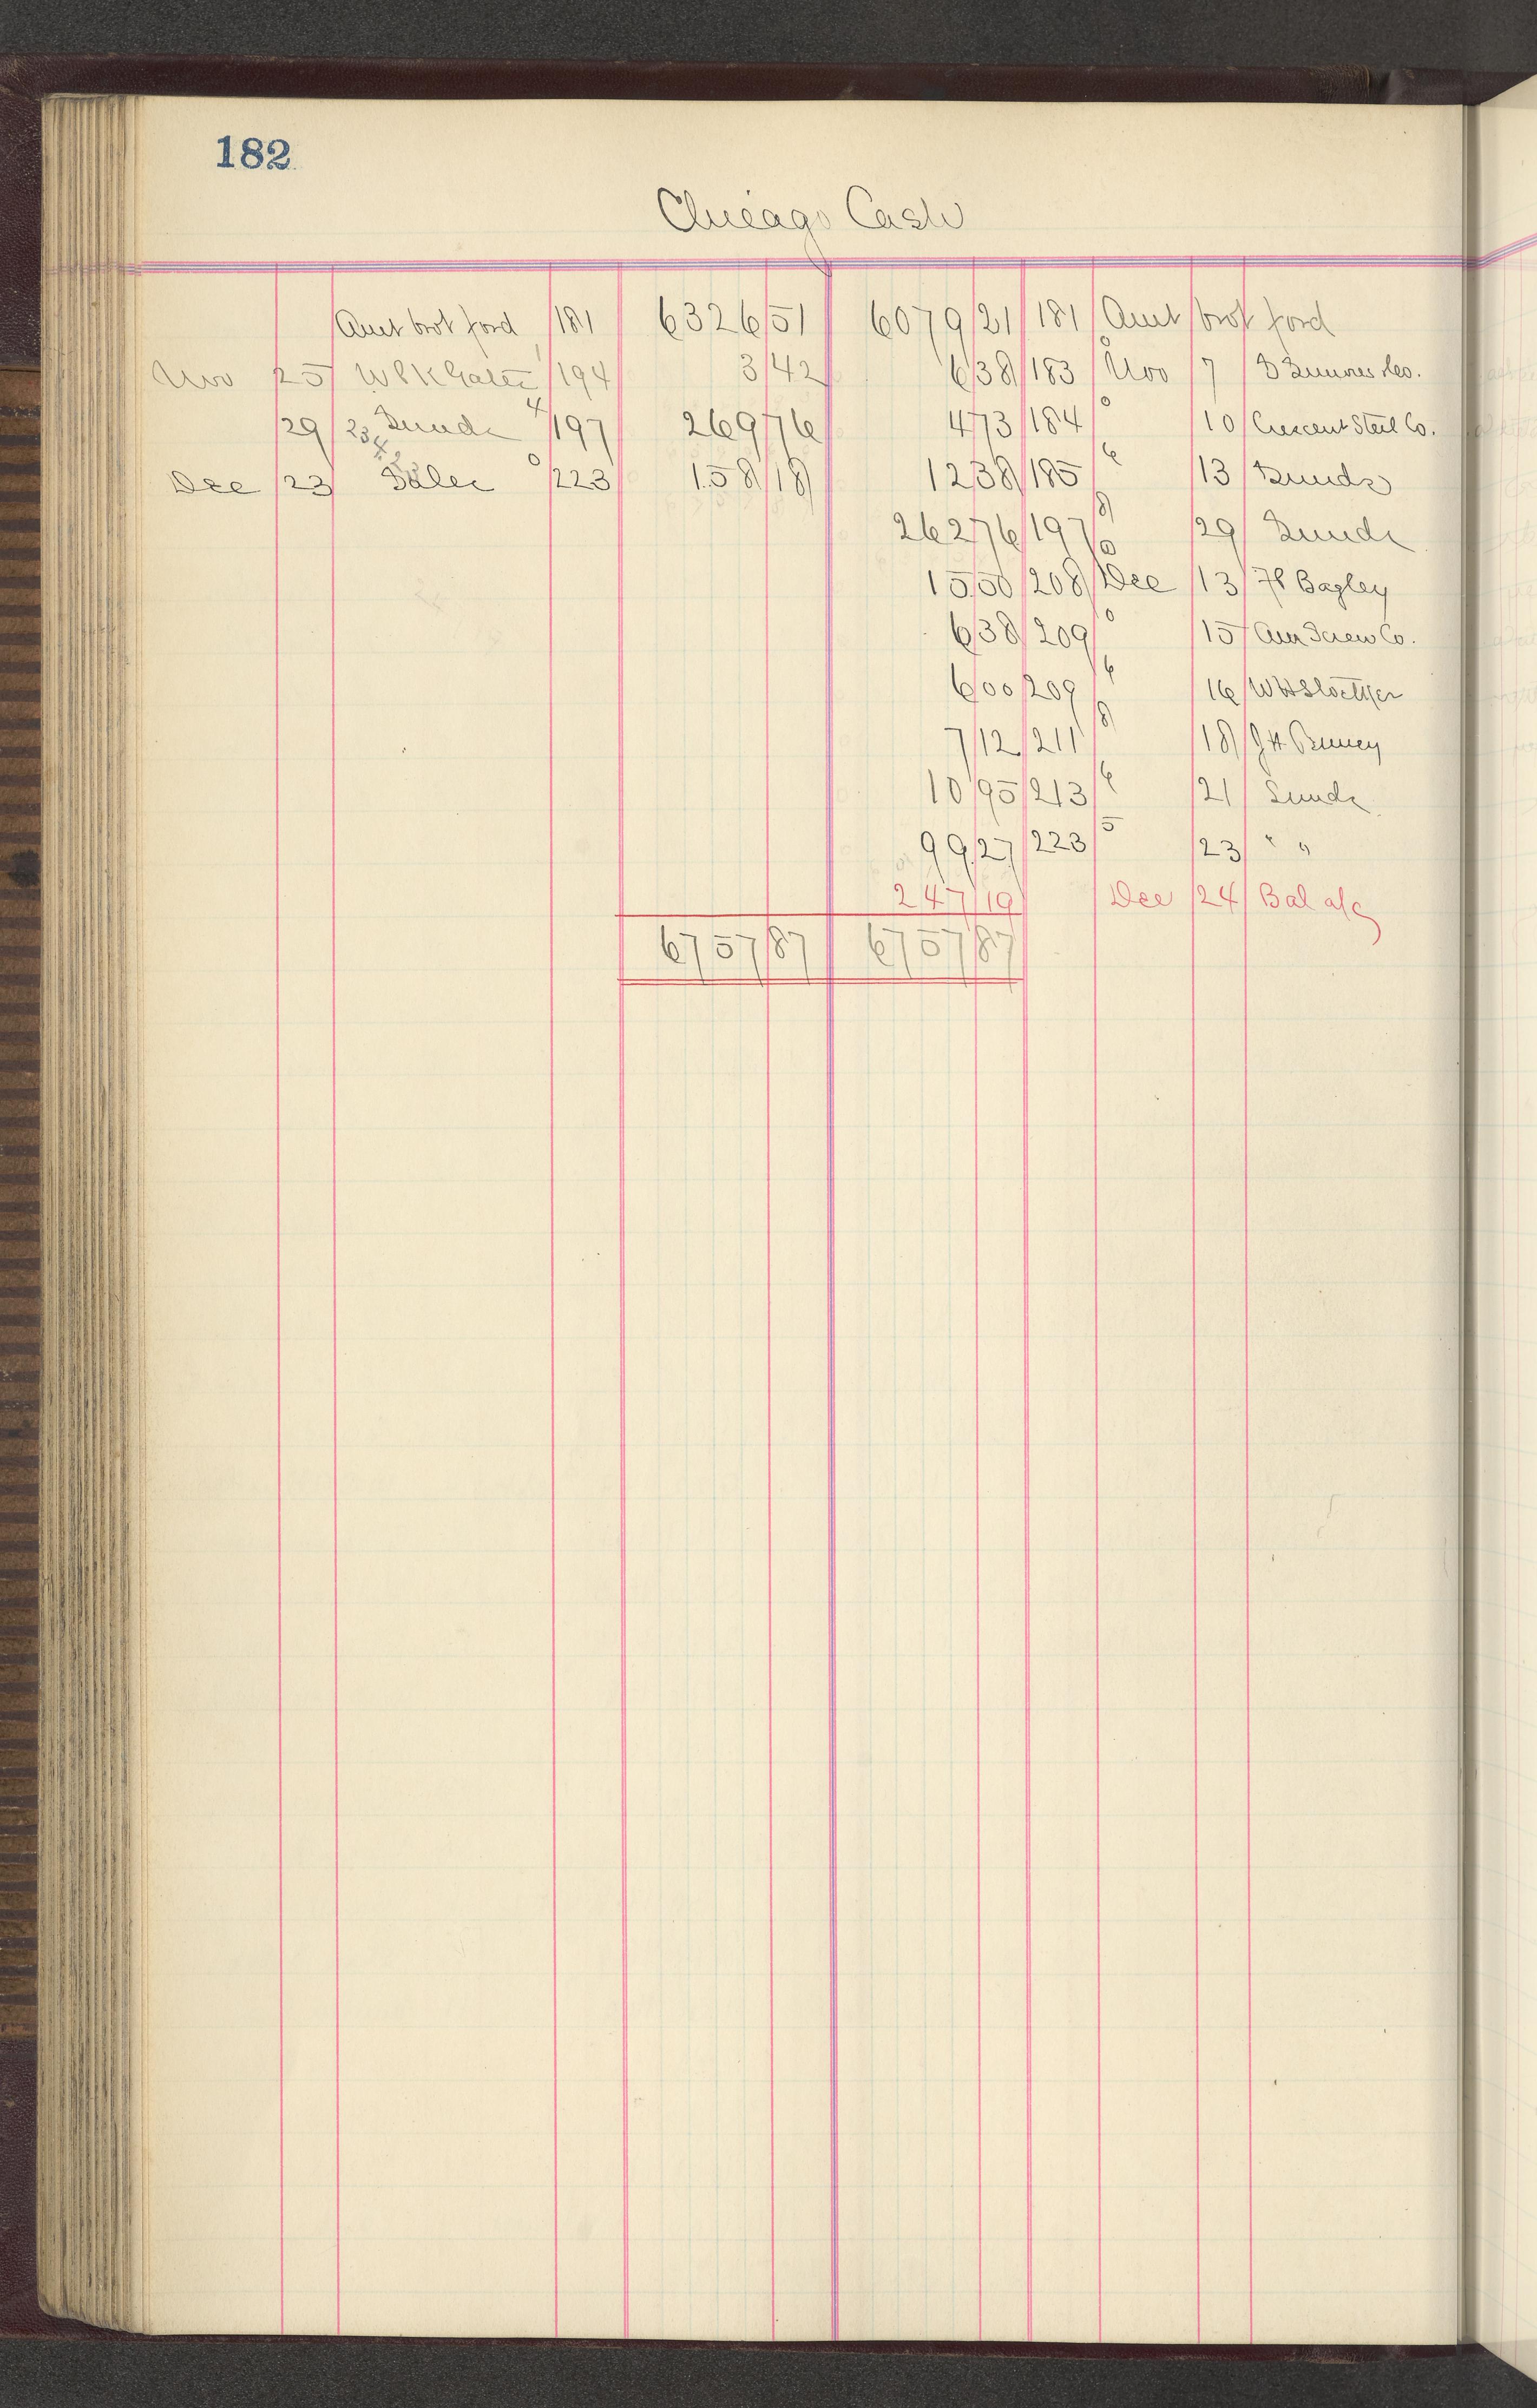 182
Chicago Cash
Amt brot ford 181 6326 51 6079 21 181 Amt brot ford
Nov 25 W P K Gates 194 3 42 6 38 183 Nov 7 & Co.
29 Sunds 197 269 76 4 73 184 10 Crescent Steel Co.
Dec 23 Sales 223 158 18 12 38 185 13 Sunds
262 76 197 29 Sunds
15 50 208 Dec 13 F P Bagley
6 38 209 15 Am Screw Co.
6 00 209 16 W H
7 12 211 18 J H Penney
10 95 213 21 Sunds
99 27 223 23 " "
247 19 Dec 24 Bal a/c
6757 87 6757 87